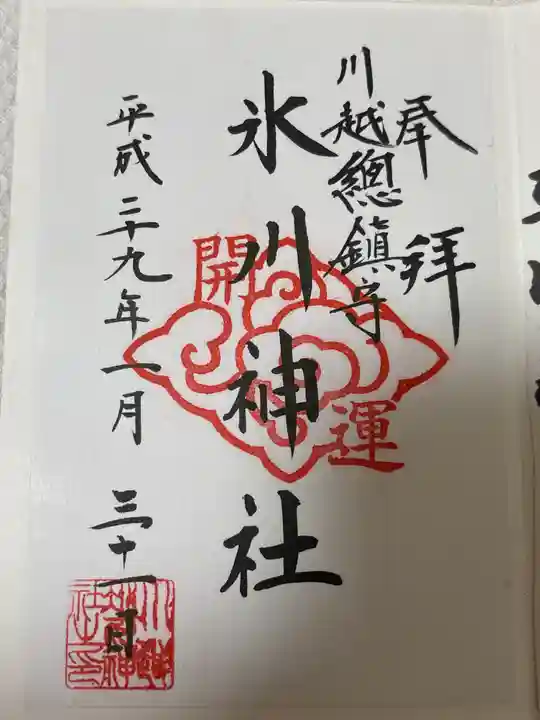 奉拝
川越總鎮守
氷川神社
開運
平成二十九年一月三十一日